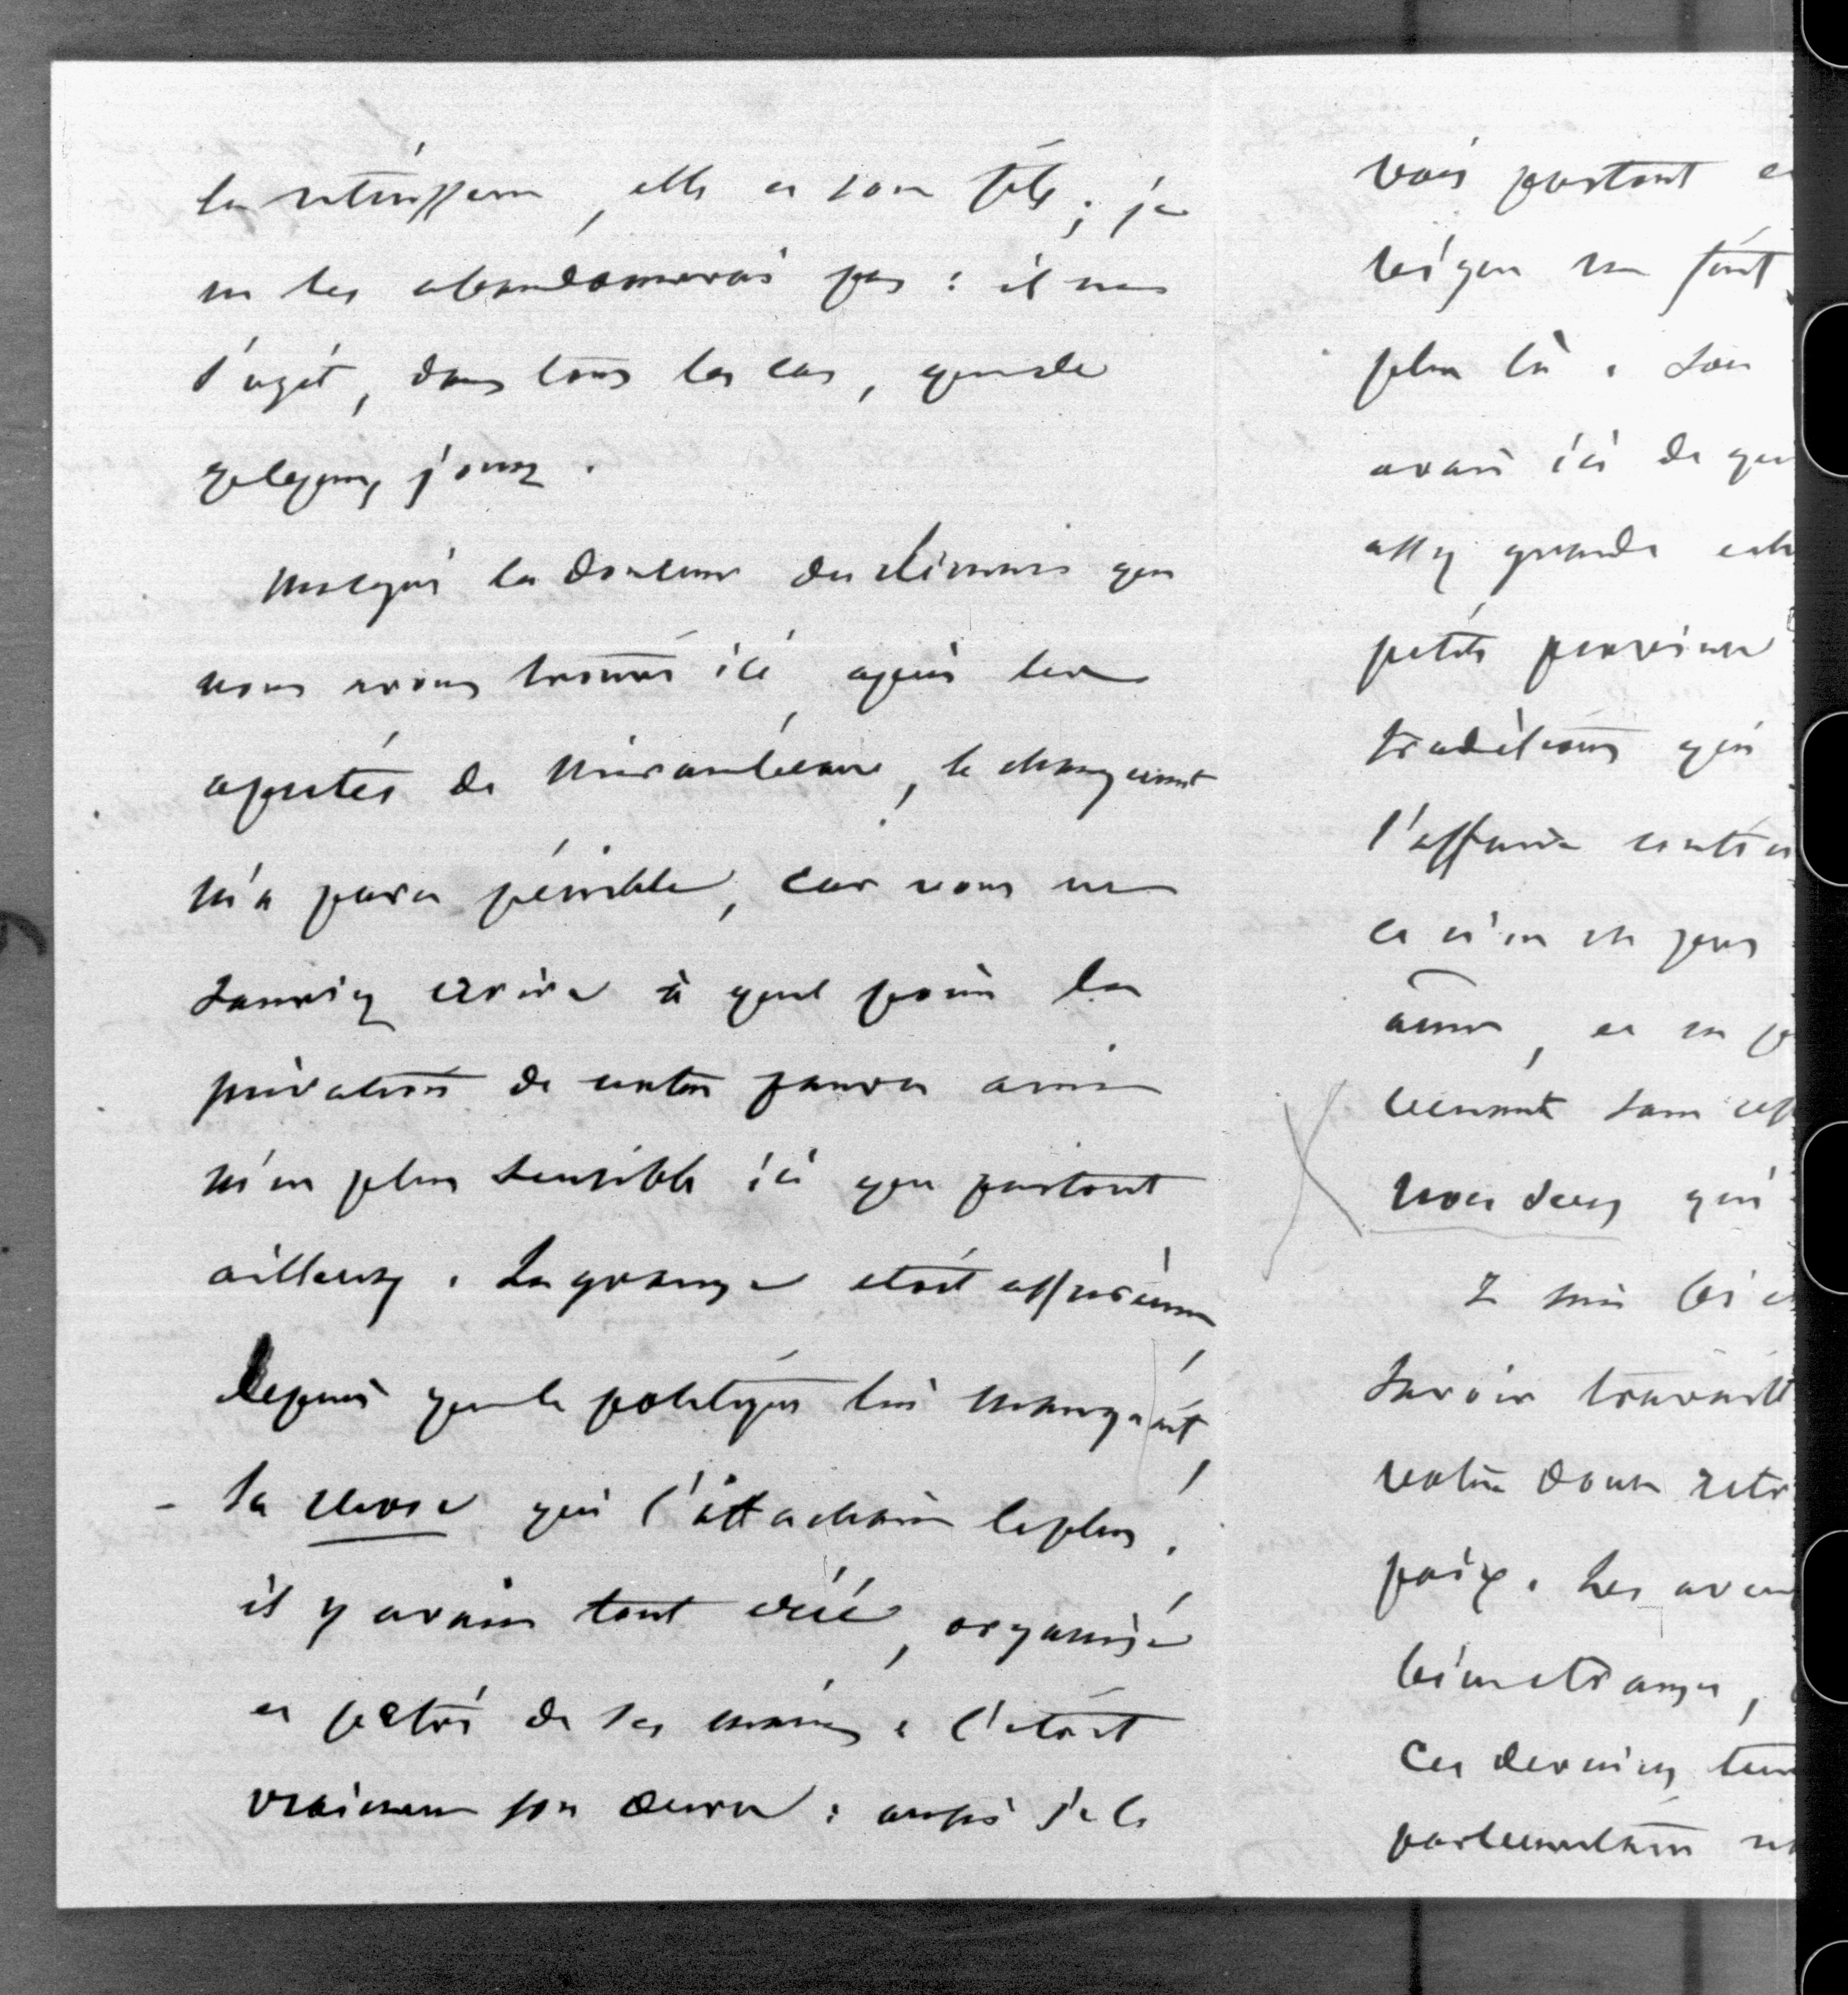 la retinssent, elle et son fils ; je
ne les abandonnerais pas : il ne
s'agit, dans tous les cas, que de
quelques jours.
Malgré la douceur du climat que
nous avons trouvé ici après les
âpretés de Mirambeau, le changement
m'a paru pénible, car vous ne
sauriez croire à quel point la
privation de notre pauvre ami
m'est plus sensible ici que partout
ailleurs. La grange était assurément
depuis que la politique lui manquait,
- la chose qui l'attachait le plus.
il y avait tout créé, organisé
et pétri de ses mains : c'était
vraiment son œuvre : aussi je le
vois partout
loisque ne font
plus là. Son
avait ici de
assez grande
petite province
traditions qui
l'affaire
ce n'en est pas
âme, et ne
venant sans
vous deux qui
Je suis
savoir
votre doux
paix. Les
bien étrange,
Ces derniers
parlementaire